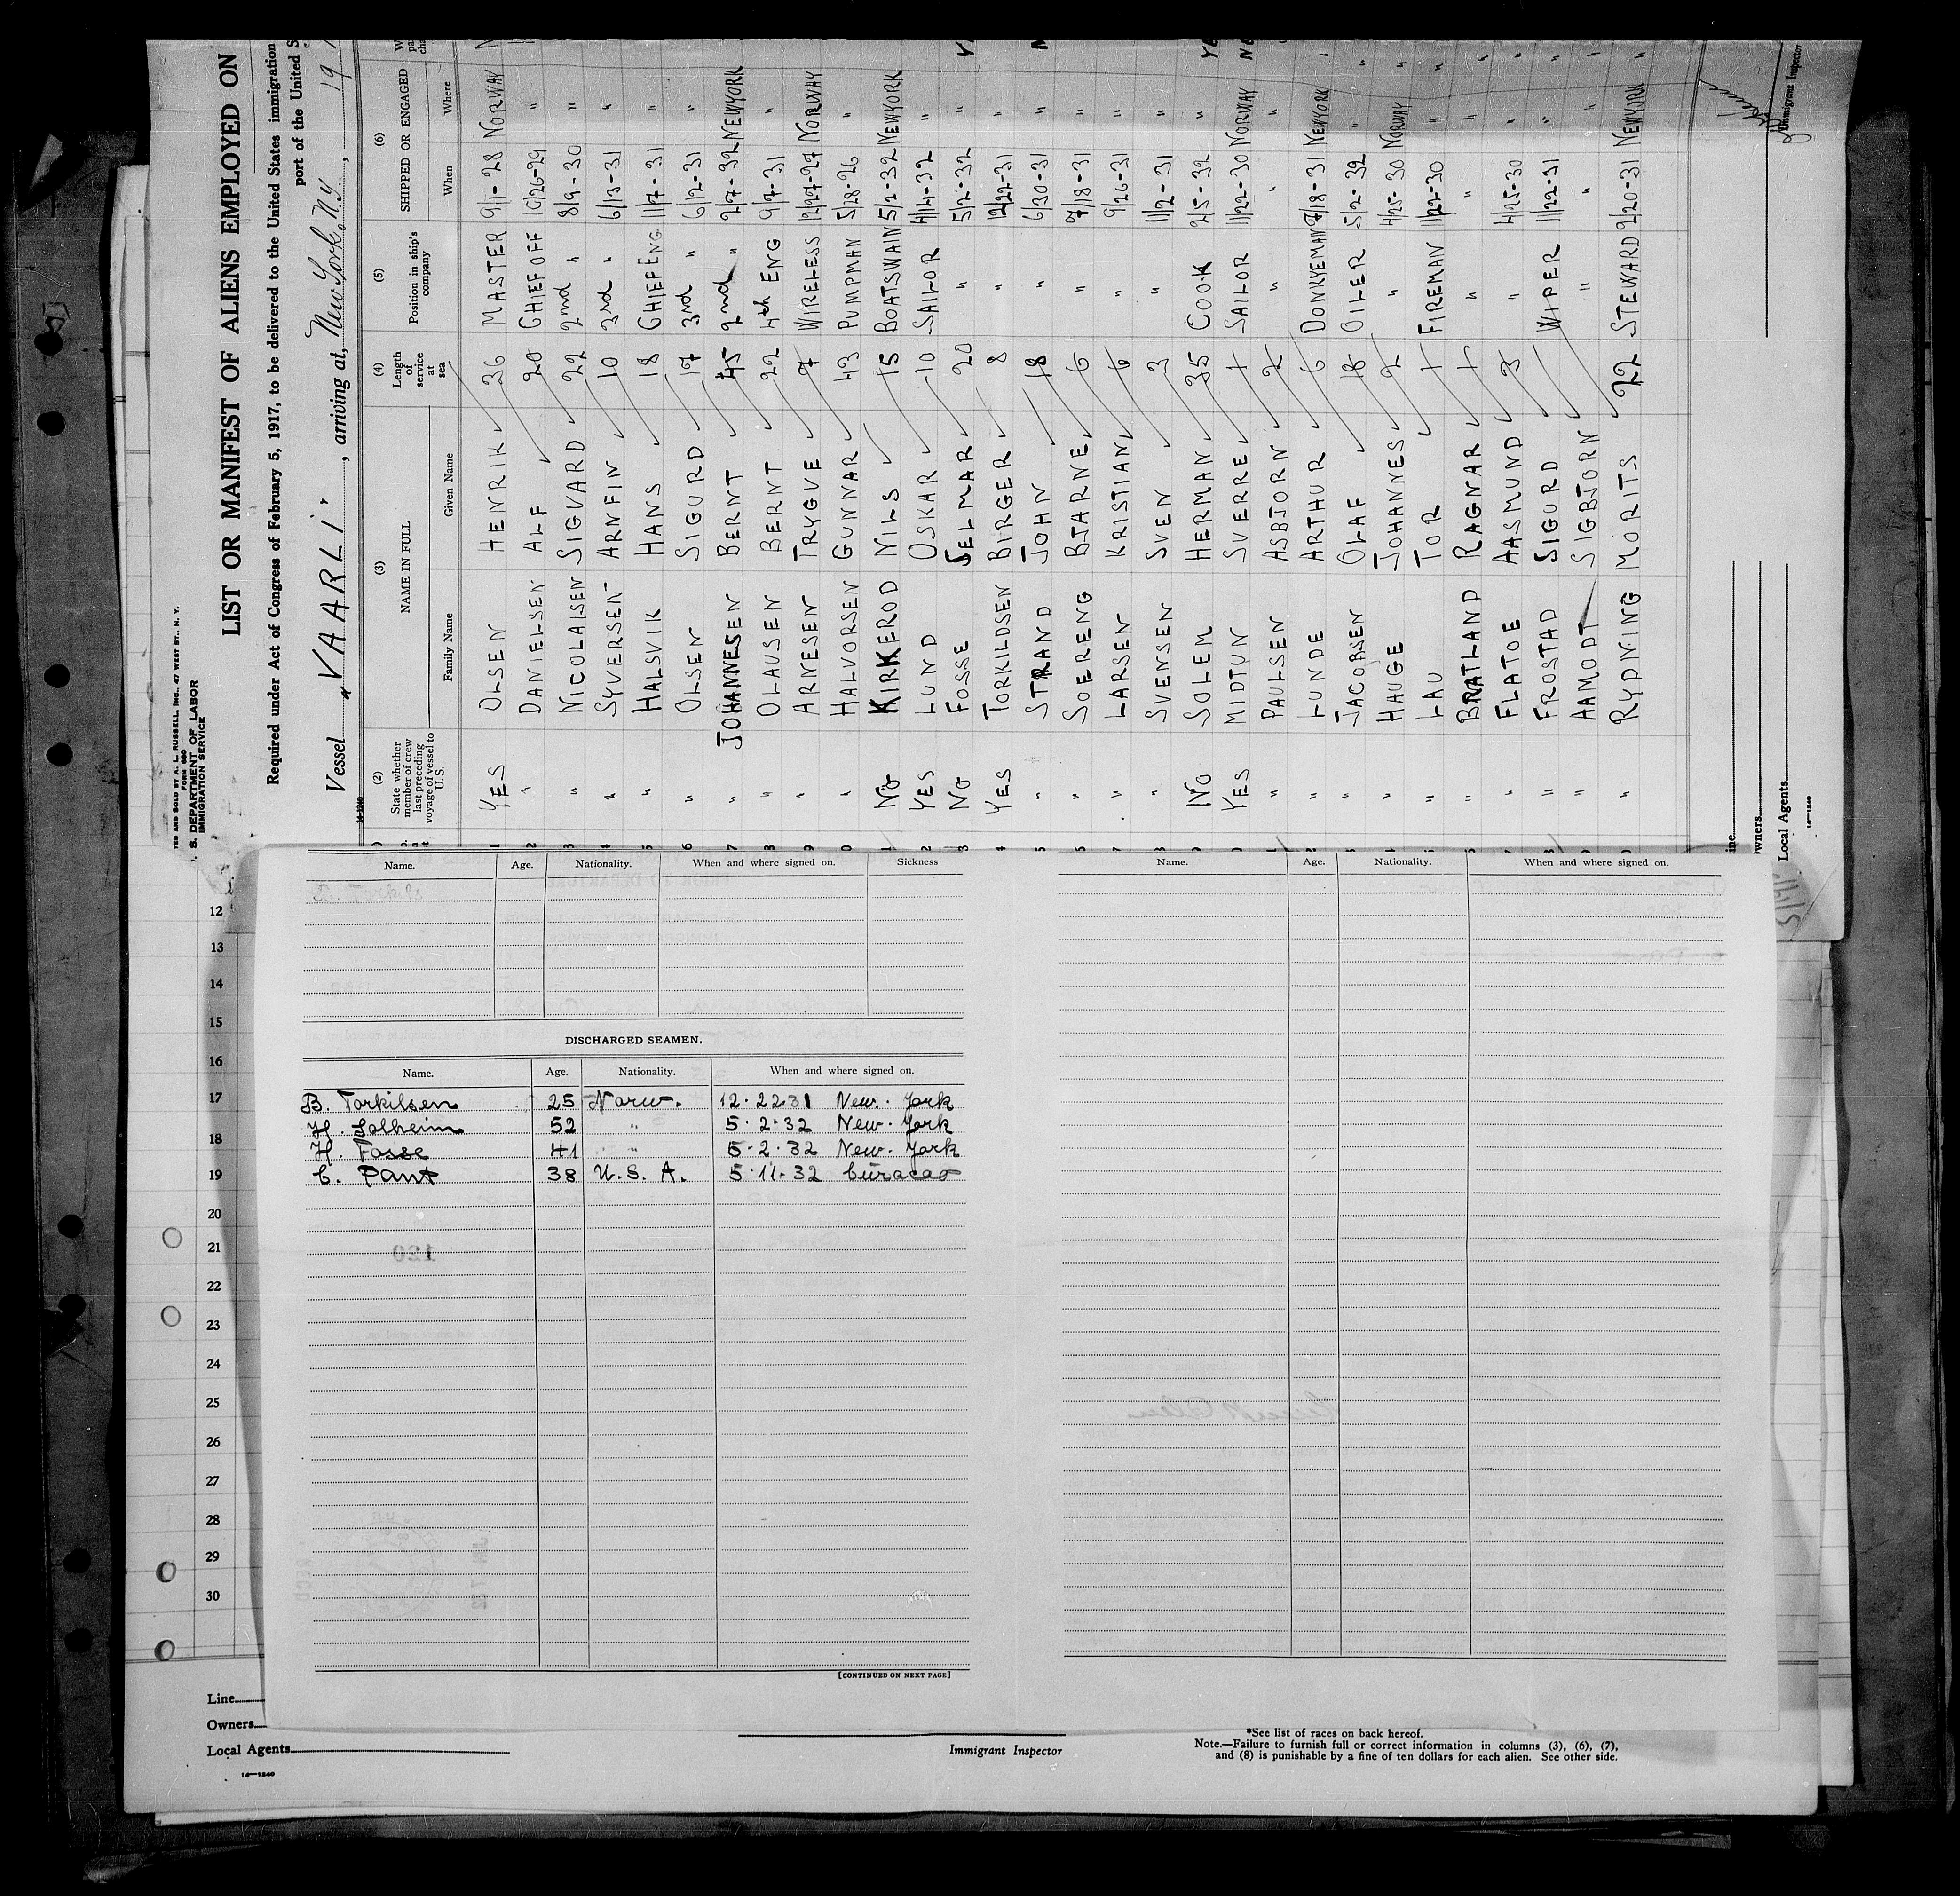 TED AND SOLD BY A. L. RUSSELL, INC., 47 WEST ST., N. Y.
FORM 680
S. DEPARTMENT OF LABOR
IMMIGRATION SERVICE
LIST OR MANIFEST OF ALIENS EMPLOYED ON
Required under Act of Congress of February 5, 1917, to be delivered to the United States immigration
port of the United S
Vessel "VAARLI", arriving at, New York. N.Y., 19
14-1240
(2) (3) (4) (5) (6)
State whether member of crew last preceding voyage of vessel to U.S. NAME IN FULL Length of service at sea Position in ship's company SHIPPED OR ENGAGED
Family Name Given Name When Where
1 YES OLSEN HENRIK 36 MASTER 9/1-28 NORWAY
2 " DANIELSEN ALF 20 CHIEF OFF 10/26-29 "
3 " NICOLAISEN SIGVARD 22 2nd " 8/9-30 "
4 " SYVERSEN ARNFIN 10 3rd " 6/13-31 "
5 " HALSVIK HANS 18 CHIEF ENG 11/7-31 "
6 " OLSEN SIGURD 17 3rd " 6/2-31 "
7 " JOHANNESEN BERNT 45 2nd " 2/7-32 NEWYORK
8 " OLAUSEN BERNT 22 4th ENG 9/7-31 "
9 " ARNESEN TRYGVE 7 WIRELESS 12/27-27 NORWAY
0 " HALVORSEN GUNNAR 43 PUMPMAN 5/28-26 "
1 NO KIRKEROD NILS 15 BOATSWAIN 5/2-32 NEWYORK
2 YES LUND OSKAR 10 SAILOR 4/14-32 "
3 NO FOSSE JELMAR 20 " 5/2-32 "
4 YES TORKILDSEN BIRGER 8 " 12/22-31 "
5 " STRAND JOHN 18 " 6/30-31 "
" SOERENG BJARNE 6 " 7/18-31 "
7 " LARSEN KRISTIAN 6 " 9/26-31 "
" SVENSEN SVEN 3 " 11/2-31 "
NO SOLEM HERMAN 35 COOK 2/5-32 "
YES MIDTUN SVERRE 1 SAILOR 11/22-30 NORWAY
" PAULSEN ASBJORN 2 " " "
" LUNDE ARTHUR 6 DONKYEMAN 7/18-31 NEWYORK
" JACOBSEN OLAF 18 OILER 5/2-32 "
" HAUGE JOHANNES 2 " 4/25-30 NORWAY
" LAU TOR 1 FIREMAN 11/22-30 "
" BRATLAND RAGNAR 1 " " "
" FLATOE AASMUND 3 " 4/25-30 "
" FROSTAD SIGURD WIPER 11/22-31 "
" AAMODT SIGBJORN " " "
" RYDNING MORITS 22 STEWARD 2/20-31 NEWYORK
Immigrant Inspector
ine
wners
Local Agents
14-1240
Name. Age. Nationality. When and where signed on. Sickness
Name. Age. Nationality. When and where signed on.
DISCHARGED SEAMEN.
Name. Age. Nationality. When and where signed on.
B. Torkilsen 25 Norw. 12.22.31 New. York
H. Solheim 52 " 5.2.32 New. York
H. Fosse 41 " 5.2.32 New York
C. Pant 38 U.S.A. 5.11.32 Curacao
[CONTINUED ON NEXT PAGE]
12
13
14
15
16
17
18
19
20
21
22
23
24
25
26
27
28
29
30
Line
Owners
Local Agents
14-1240
Immigrant Inspector
*See list of races on back hereof.
Note.—Failure to furnish full or correct information in columns (3), (6), (7),
and (8) is punishable by a fine of ten dollars for each alien. See other side.